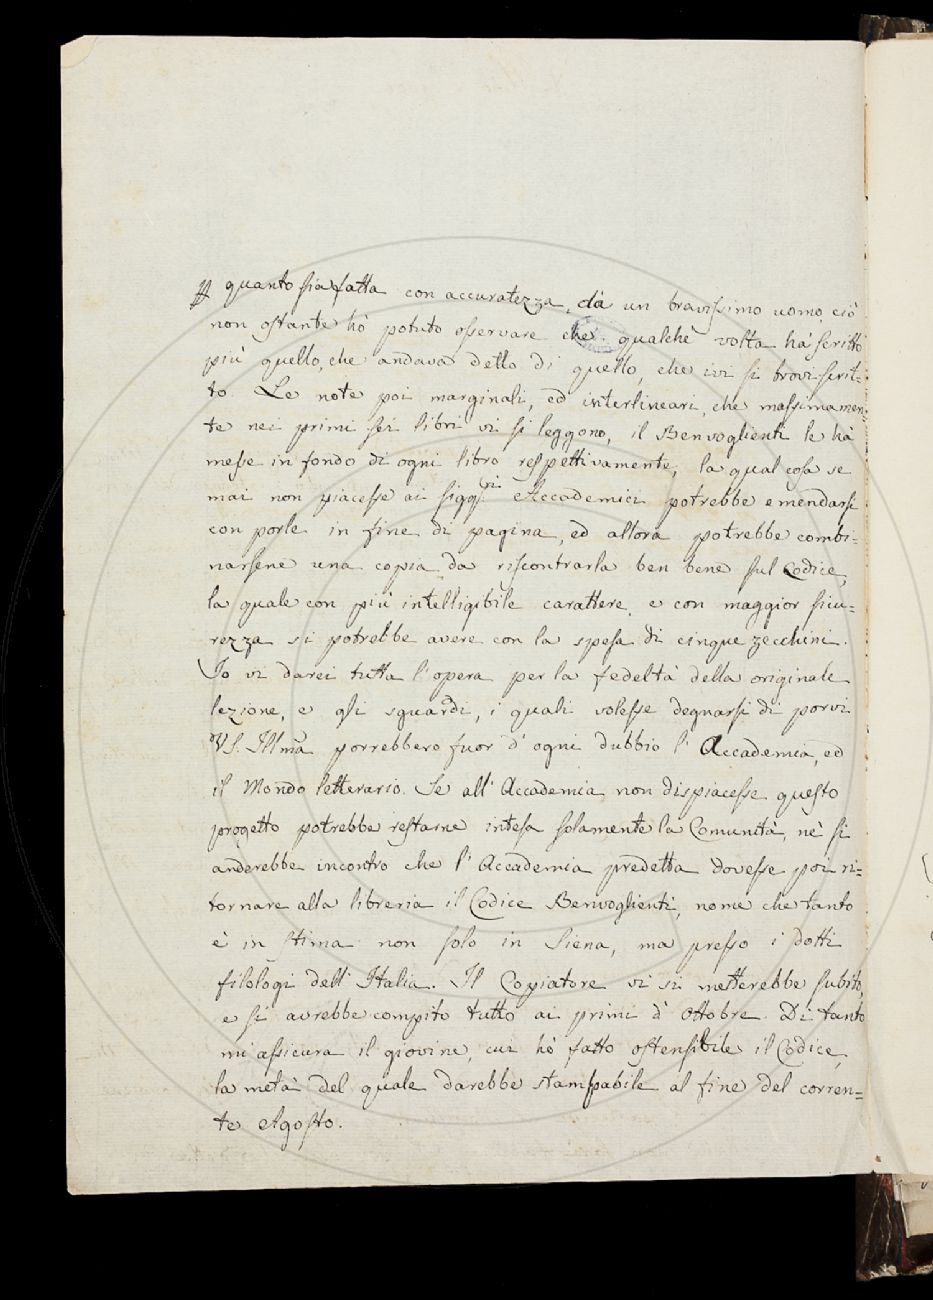 quanto sia fatta con accuratezza, dà un bravissimo uomo, ciò
non ostante hò potuto osservare che qualchè volta hà scritto
più quello, che andava detto di quello, che ivi si trovi scrit=
to. Le note poi marginali, ed interlineari, che massimamen=
te nei primi sei libri vi si leggono, il Benvoglienti le hà
messe in fondo di ogni libro respettivamente, la qual cosa se
mai non piacesse ai Sigg.ri Accademici potrebbe emendarsi
con porle in fine di pagina, ed allora potrebbe combi=
narsene una copia da riscontrarla ben bene sul Codice,
la quale con più intelligibile carattere, e con maggior sicu=
rezza si potrebbe avere con la spesa di cinque zecchini.
Io vi darei tutta l'opera per la fedeltà della originale
lezione, e gli sguardi, i quali volesse degnarsi di porvi
VS. Illma porrebbero fuor d'ogni dubbio l'Accademia, ed
il Mondo letterario. Se all'Accademia non dispiacesse questo
progetto potrebbe restarne intesa solamente la Comunità, nè si
anderebbe incontro che l'Accademia predetta dovesse poi ri=
tornare alla libreria il Codice Benvoglienti, nome che tanto
è in stima non solo in Siena, ma presso i dotti
filologi dell'Italia. Il Copiatore vi si metterebbe subito,
e si avrebbe compito tutto ai primi d'Ottobre. Di tanto
mi assicura il giovine, cui hò fatto ostensibile il Codice,
la metà del quale darebbe stampabile al fine del corren=
te Agosto.